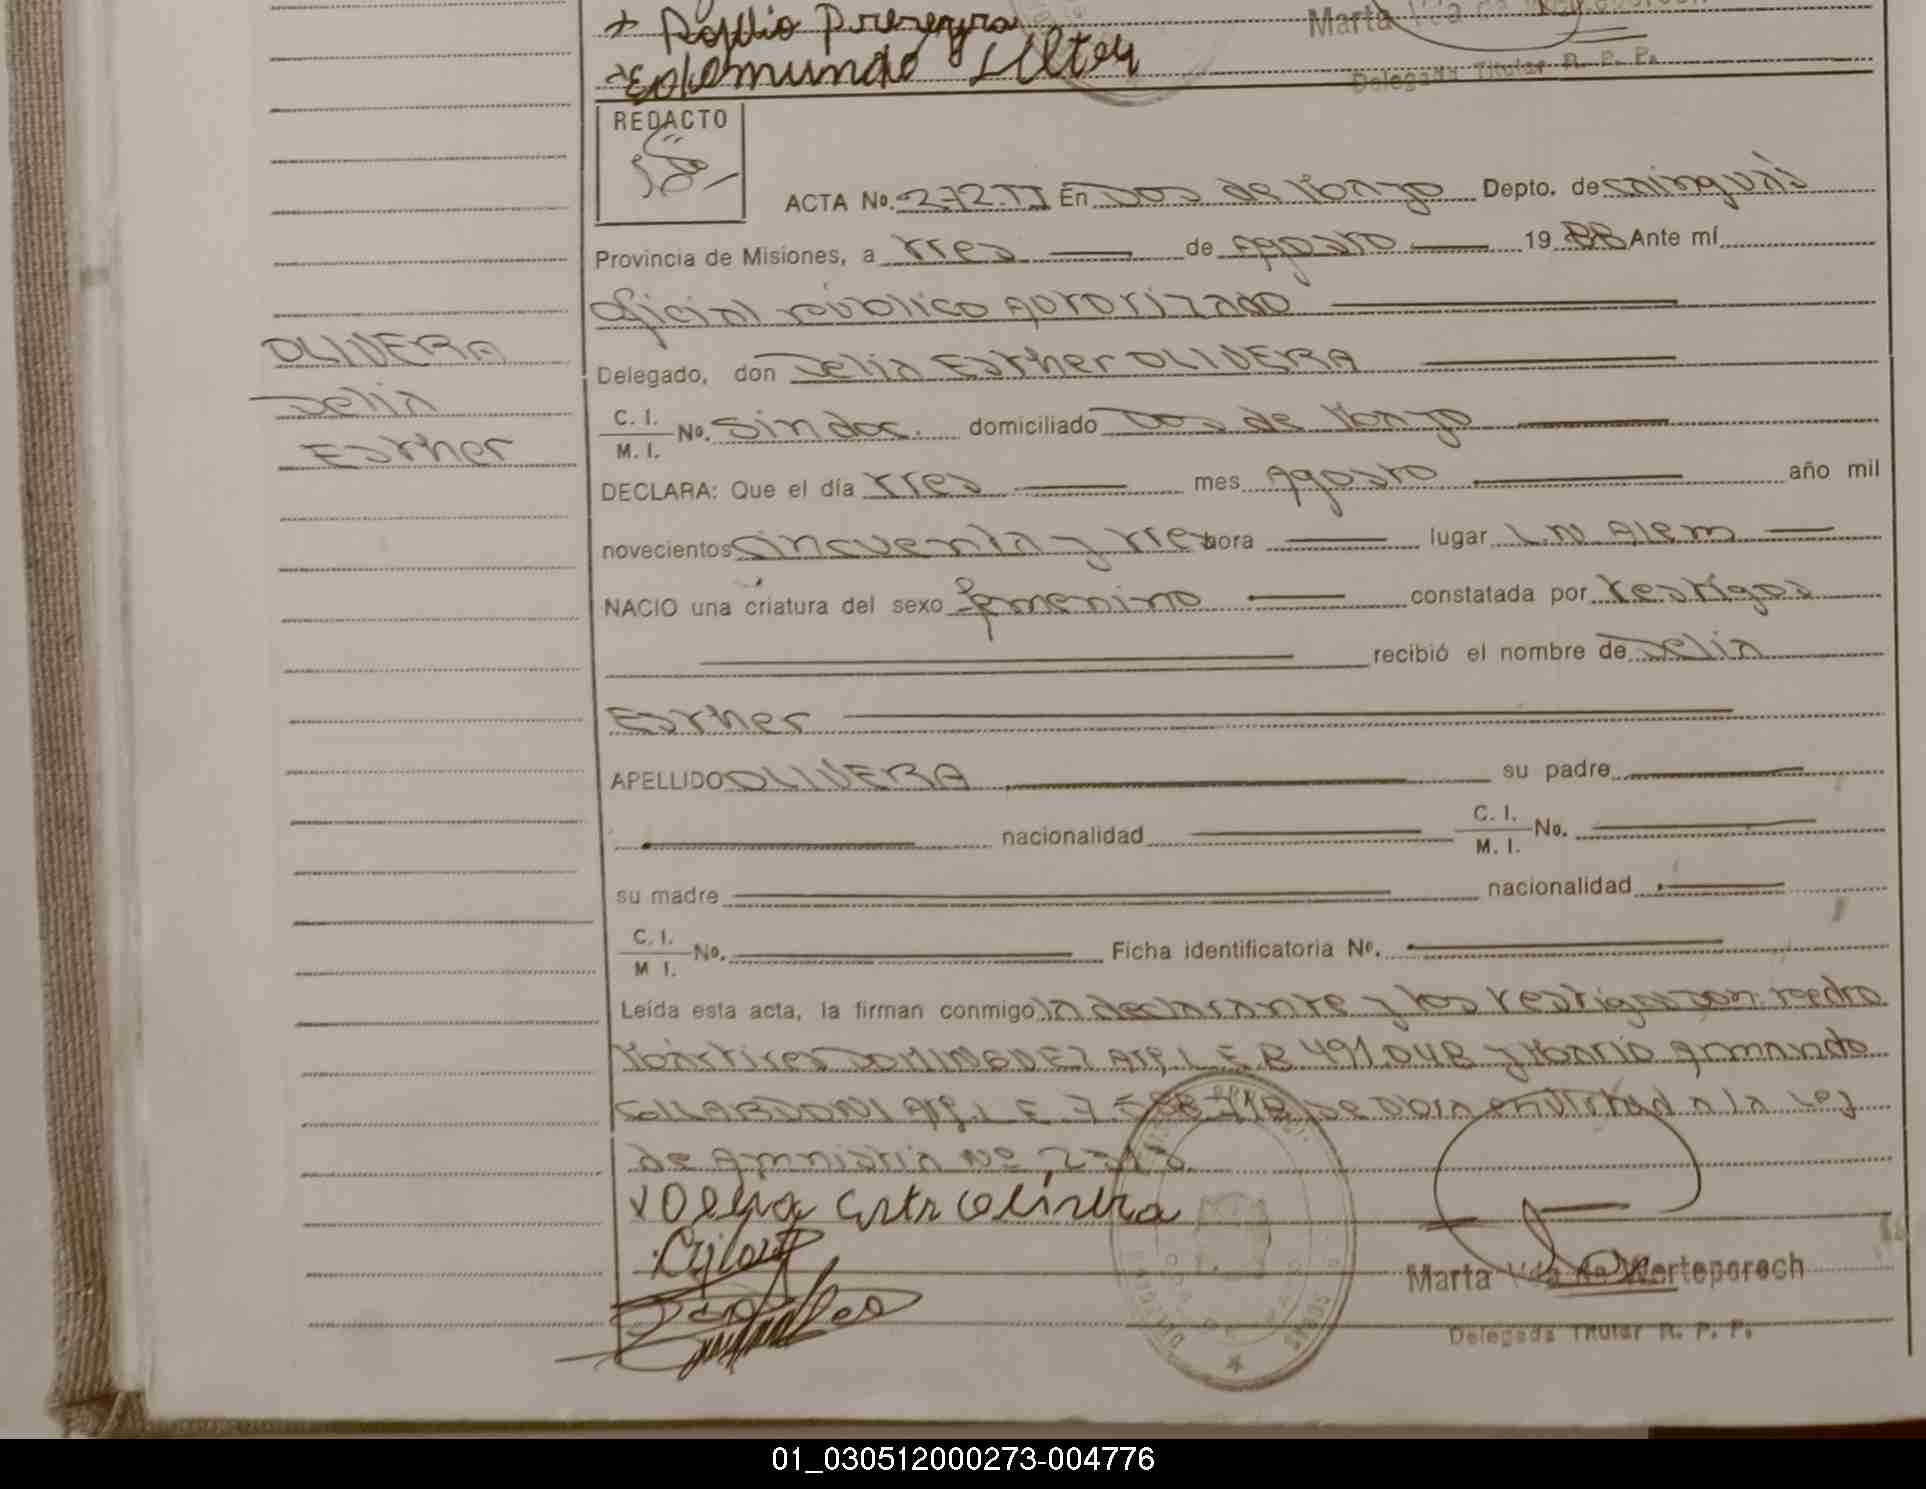 + Rogelio Pereyra
Marta Vda de Werteporoch
Delegada Titular R. P. P.
REDACTO
ACTA No. 272. TI En Dos de Mayo Depto. de Cainguás
Provincia de Misiones, a tres de Agosto 1988 Ante mí
Oficial público Autorizado
OLIVERA
Delegado, don Delia Esther OLIVERA
Delia
C. I.
M. I. No. Sin doc. domiciliado Dos de Mayo
Esther
DECLARA: Que el día tres mes Agosto año mil
novecientos cincuenta y tres hora lugar L.N. Alem
NACIO una criatura del sexo femenino constatada por testigos
recibió el nombre de Delia
Esther
APELLIDO OLIVERA su padre
nacionalidad C. I.
M. I. No.
su madre nacionalidad
C. I.
M I. No. Ficha identificatoria No.
Leída esta acta, la firman conmigo la declarante y los testigos Don: Pedro
DOMINGUEZ Arg. L.E. 8 491.048 y Mario Armando
GILLARDONI Arg. L E 7. Se labra en virtud a la Ley
de Amnistia No
x Delia Estr Olivera
Marta Vda de Werteporoch
Delegada Titular R. P. P.
01_030512000273-004776